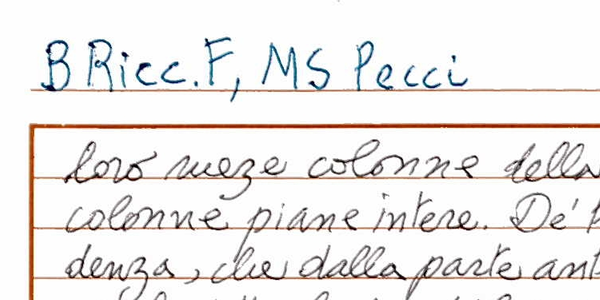 B Ricc. F, MS Pecci
loro meze colonne della
colonne piane intere. De'
denza, che dalla parte